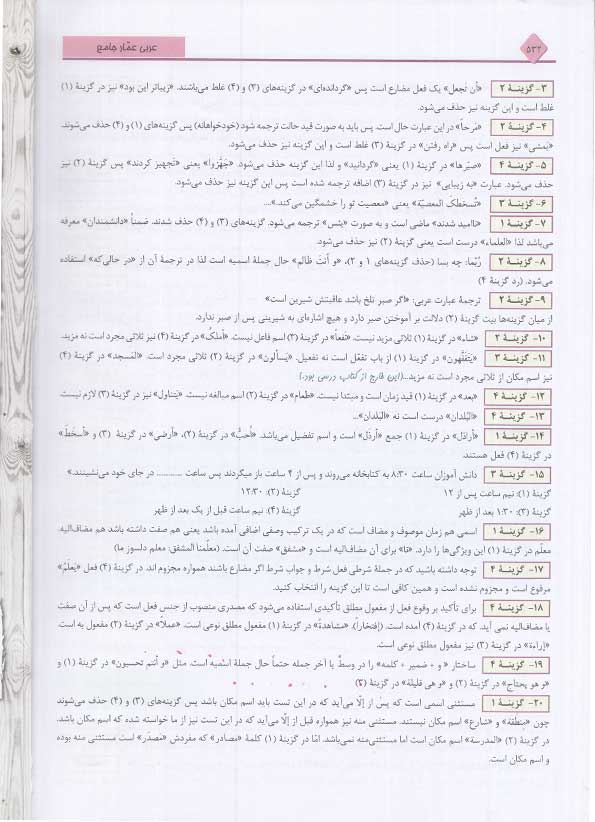 عربی عمّار جامع
۵۳۲
۳- گزینهٔ ۲ «أن نجعل» یک فعل مضارع است پس «گردانده‌ای» در گزینه‌های (۳) و (۴) غلط می‌باشند. «زیباتر این بود» نیز در گزینهٔ (۱)
غلط است و این گزینه نیز حذف می‌شود.
۴- گزینهٔ ۲ «مَرحاً» در این عبارت حال است. پس باید به صورت قید حالت ترجمه شود (خودخواهانه) پس گزینه‌های (۱) و (۴) حذف می‌شوند.
«یَمشی» نیز فعل است پس «راه رفتن» در گزینهٔ (۳) غلط است و این گزینه نیز حذف می‌شود.
۵- گزینهٔ ۴ «صیّرها» در گزینهٔ (۱) یعنی «گردانید» و لذا این گزینه حذف می‌شود. «جَهَّزوا» یعنی «تجهیز کردند» پس گزینهٔ (۲) نیز
حذف می‌شود. عبارت «به زیبایی» نیز در گزینهٔ (۳) اضافه ترجمه شده است پس این گزینه نیز حذف می‌شود.
۶- گزینهٔ ۳ «تُسخطک المعصیّة» یعنی «معصیت تو را خشمگین می‌کند.»...
۷- گزینهٔ ۱ «ناامید شدند» ماضی است و به صورت «یئس» ترجمه می‌شود. گزینه‌های (۳) و (۴) حذف شدند. ضمناً «دانشمندان» معرفه
می‌باشد لذا «العلماء» درست است یعنی گزینهٔ (۲) نیز حذف می‌شود.
۸- گزینهٔ ۲ رُبّما: چه بسا (حذف گزینه‌های ۱ و ۲)، «و أنتَ ظالم» حال جملهٔ اسمیه است لذا در ترجمهٔ آن از «در حالی‌که» استفاده
می‌شود. (رد گزینهٔ ۴)
۹- گزینهٔ ۲ ترجمهٔ عبارت عربی: «اگر صبر تلخ باشد عاقبتش شیرین است»
از میان گزینه‌ها بیت گزینهٔ (۲) دلالت بر آموختن صبر دارد و هیچ اشاره‌ای به شیرینی پس از صبر ندارد.
۱۰- گزینهٔ ۲ «شاء» در گزینهٔ (۱) ثلاثی مزید نیست. «نفعاً» در گزینهٔ (۳) اسم فاعل نیست. «أملکُ» در گزینهٔ (۴) نیز ثلاثی مجرد است نه مزید.
۱۱- گزینهٔ ۳ «یَتَفَقَّهون» در گزینهٔ (۱) از باب تفعّل است نه تفعیل. «یَسألون» در گزینهٔ (۲) ثلاثی مجرد است. «المَسجد» در گزینهٔ (۴)
نیز اسم مکان از ثلاثی مجرد است نه مزید...(این خارج از کتاب درسی بود.)
۱۲- گزینهٔ ۴ «بعد» در گزینهٔ (۱) قید زمان است و مبتدا نیست. «طعام» در گزینهٔ (۲) اسم مبالغه نیست. «یَتناول» نیز در گزینهٔ (۳) لازم نیست.
۱۳- گزینهٔ ۴ «البُلدان» درست است نه «البَلدان»...
۱۴- گزینهٔ ۱ «أراذل» در گزینهٔ (۱) جمع «أرذل» است و اسم تفضیل می‌باشد. «أحبُّ» در گزینهٔ (۲)، «أرضي» در گزینهٔ (۳) و «أسخطَ»
در گزینهٔ (۴) فعل هستند.
۱۵- گزینهٔ ۳ دانش آموزان ساعت ۸:۳۰ به کتابخانه می‌روند و پس از ۴ ساعت باز میگردند پس ساعت ............ در جای خود می‌نشینند.»
گزینهٔ (۱): نیم ساعت پس از ۱۲ گزینهٔ (۲): ۱۲:۳۰
گزینهٔ (۳): ۱:۳۰ بعد از ظهر گزینهٔ (۴): نیم ساعت قبل از یک بعد از ظهر
۱۶- گزینهٔ ۱ اسمی هم زمان موصوف و مضاف است که در یک ترکیب وصفی اضافی آمده باشد یعنی هم صفت داشته باشد هم مضاف‌الیه.
معلّم در گزینهٔ (۱) این ویژگی‌ها را دارد. «نا» برای آن مضاف‌الیه است و «مشفق» صفت آن است. (معلّمنا المشفق: معلم دلسوز ما)
۱۷- گزینهٔ ۴ توجه داشته باشید که در جملهٔ شرطی فعل شرط و جواب شرط اگر مضارع باشند همواره مجزوم اند. در گزینهٔ (۴) فعل «یَعلَمُ»
مرفوع است و مجزوم نشده است و همین کافی است تا این گزینه را انتخاب کنید.
۱۸- گزینهٔ ۴ برای تأکید بر وقوع فعل از مفعول مطلق تأکیدی استفاده می‌شود که مصدری منصوب از جنس فعل است که پس از آن صفت
یا مضاف‌الیه نمی آید. که در گزینهٔ (۴) آمده است. (إفتخاراً). «مشاهدةَ» در گزینهٔ (۱) مفعول مطلق نوعی است. «عملاً» در گزینهٔ (۲) مفعول به است.
«إراءة» در گزینهٔ (۳) نیز مفعول مطلق نوعی است.
۱۹- گزینهٔ ۴ ساختار «و + ضمیر + کلمه» را در وسط یا آخر جمله حتماً حال جملهٔ اسمیه است. مثل «و أنتم تحسبون» در گزینهٔ (۱) و
«و هو یحتاج» در گزینهٔ (۲) و «و هی قلیلة» در گزینهٔ (۳)
۲۰- گزینهٔ ۱ مستثنی اسمی است که پس از إلّا می‌آید که در این تست باید اسم مکان باشد پس گزینه‌های (۳) و (۴) حذف می‌شوند
چون «مِنطقة» و «شارع» اسم مکان نیستند. مستثنی منه نیز همواره قبل از إلّا می‌آید که در این تست نیز از ما خواسته شده که اسم مکان باشد.
در گزینهٔ (۲) «المدرسة» اسم مکان است اما مستثنی‌منه نمی‌باشد. امّا در گزینهٔ (۱) کلمهٔ «مصادر» که مفردش «مَصدَر» است مستثنی منه بوده
و اسم مکان است.